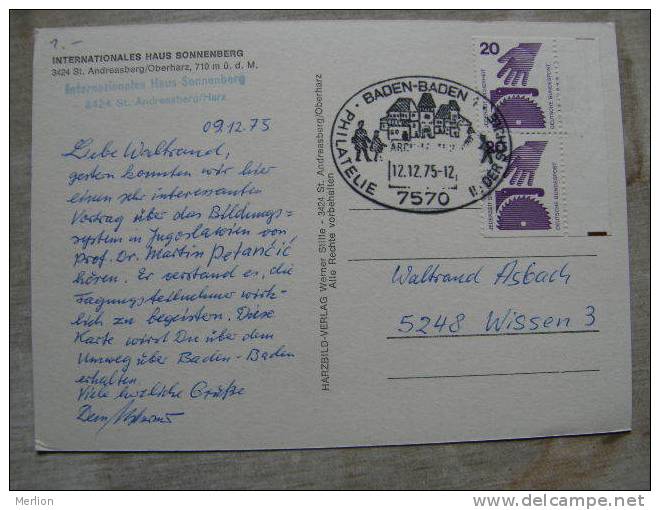 1.-
INTERNATIONALES HAUS SONNENBERG
3424 St. Andreasberg/Oberharz, 710 m ü. d. M.
Internationales Haus Sonnenberg
3424 St. Andreasberg/Harz
09.12.75
Liebe Waltraud,
gestern konnten wir hier
einen sehr interessanten
Vortrag über das Bildungs=
system in Jugoslawien von
Prof. Dr. Martin Petančić
hören. Er verstand es, die
Tagungsteilnehmer wirk-
lich zu begeistern. Diese
Karte wirst Du über dem
Umweg über Baden-Baden
erhalten.
Viele herzliche Grüße
Dein
HARZBILD-VERLAG Werner Stille - 3424 St. Andreasberg/Oberharz
Alle Rechte vorbehalten
BADEN-BADEN
PHILATELIE
12.12.75-12
7570
20
DEUTSCHE BUNDESPOST
20
DEUTSCHE BUNDESPOST
Waltraud Asbach
5248 Wissen 3
Merlion
http://www.delcampe.net